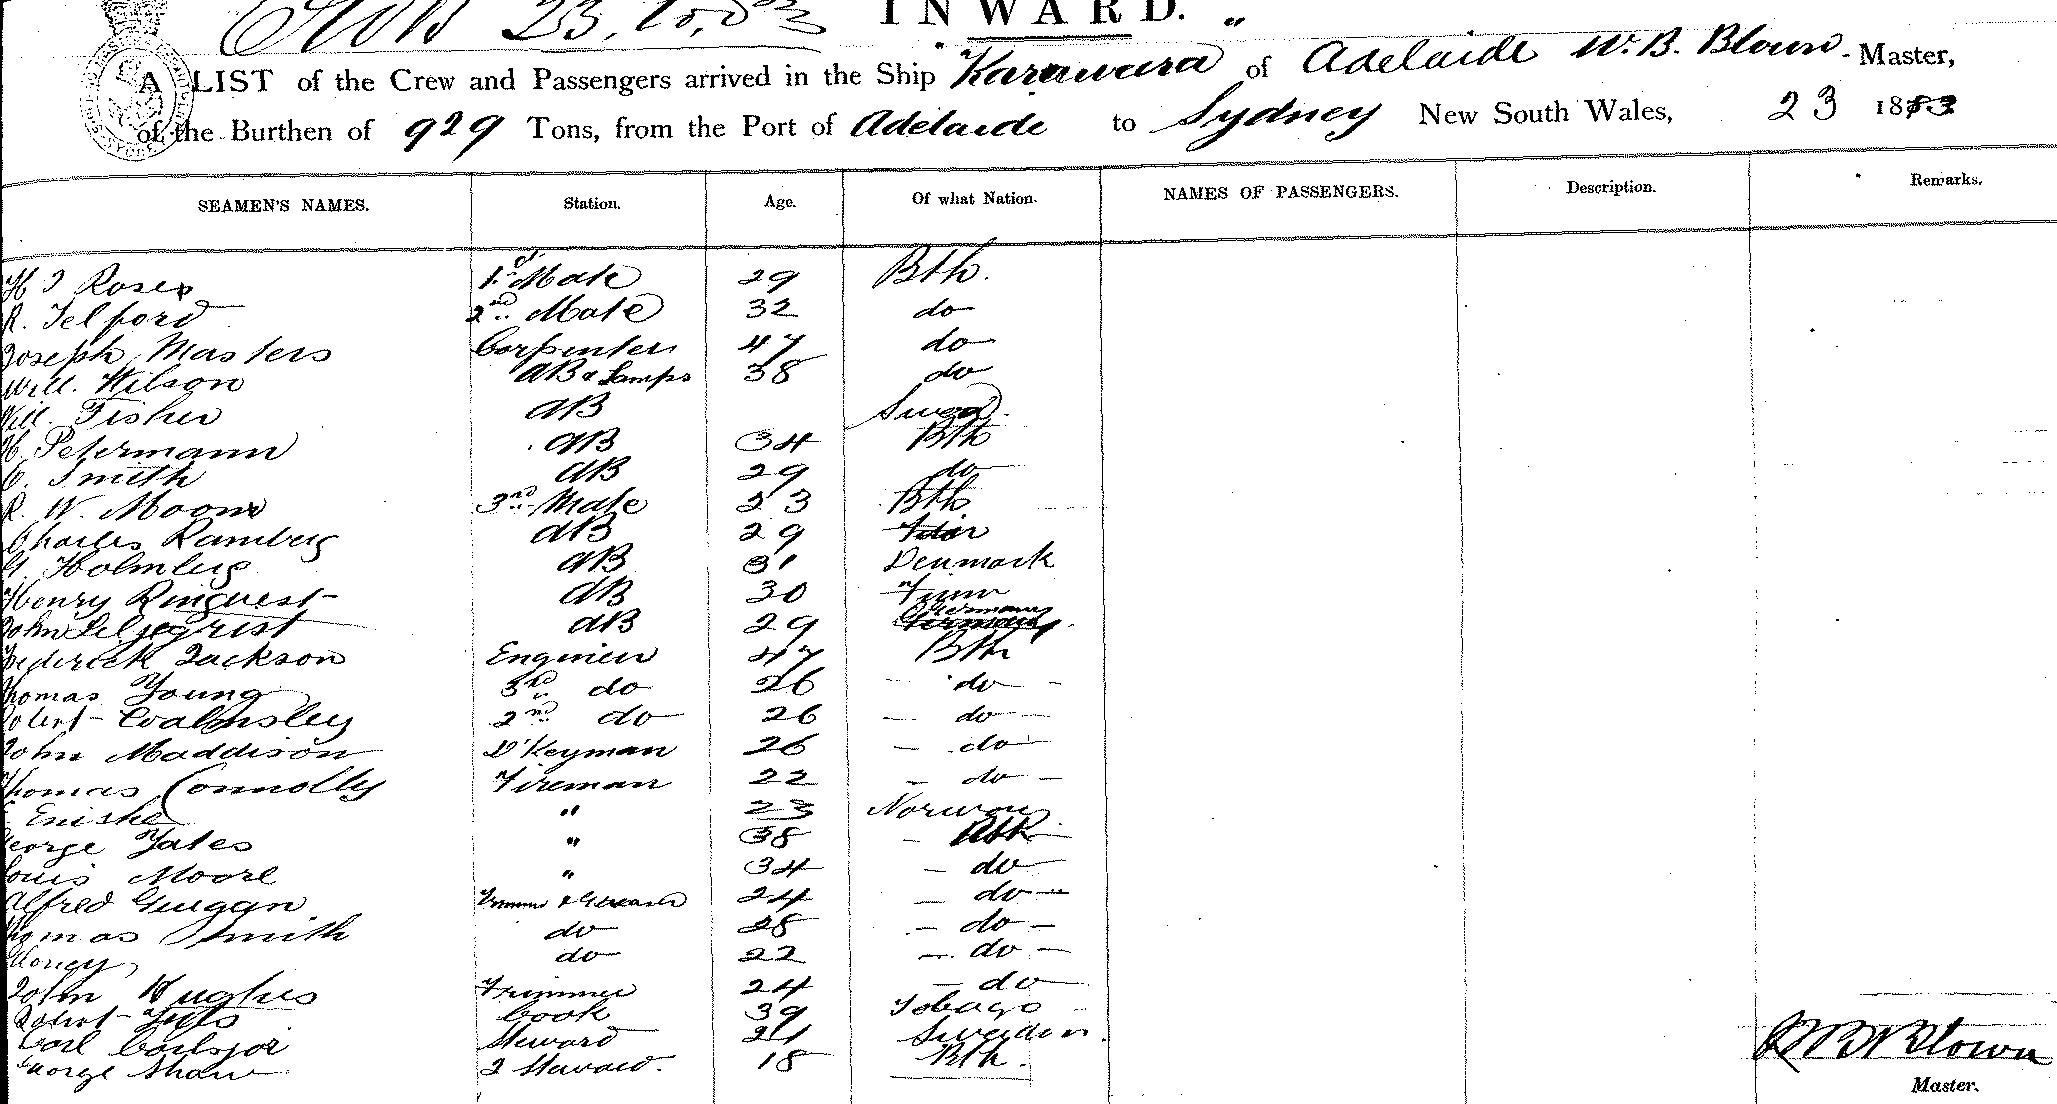 INWARD.
A LIST of the Crew and Passengers arrived in the Ship Karawara of Adelaide W. B. Blown Master,
of the Burthen of 929 Tons, from the Port of Adelaide to Sydney New South Wales, 23 1883
SEAMEN'S NAMES. Station. Age. Of what Nation. NAMES OF PASSENGERS. Description. Remarks.
H J Roses 1st Mate 29 Bth.
R. Telford 2nd Mate 32 do
Joseph Masters Carpenter 47 do
Will. Wilson AB & Lamps 38 do
Will. Fisher AB Swed.
H. Petermann AB 34 Bth
C. Smith AB 29 do
R. W. Moom 3rd Mate 23 Bth
Charles Ramberg AB 29
G. Holmberg AB 31 Denmark
Henry Ringvest AB 30 Finn
John Liljegrist AB 29 Germany
Frederick Jackson Engineer 47 Bth
Thomas Young 3rd do 26 do
Robert Walmsley 2nd do 26 do
John Maddison D'Keyman 26 do
Thomas Connolly Fireman 22 do
Enishe " 23 Norway
George Yates " 38 Bth
Louis Moore " 34 do
Alfred Guggan Trimmer & Greaser 24 do
Thomas Smith do 28 do
do 22 do
John Hughes Trimmer 24 do
Robert Cook 39 Tobago
Carl Steward 21 Sweden
George Shaw 2 Steward. 18 Bth.
W B Blown
Master.